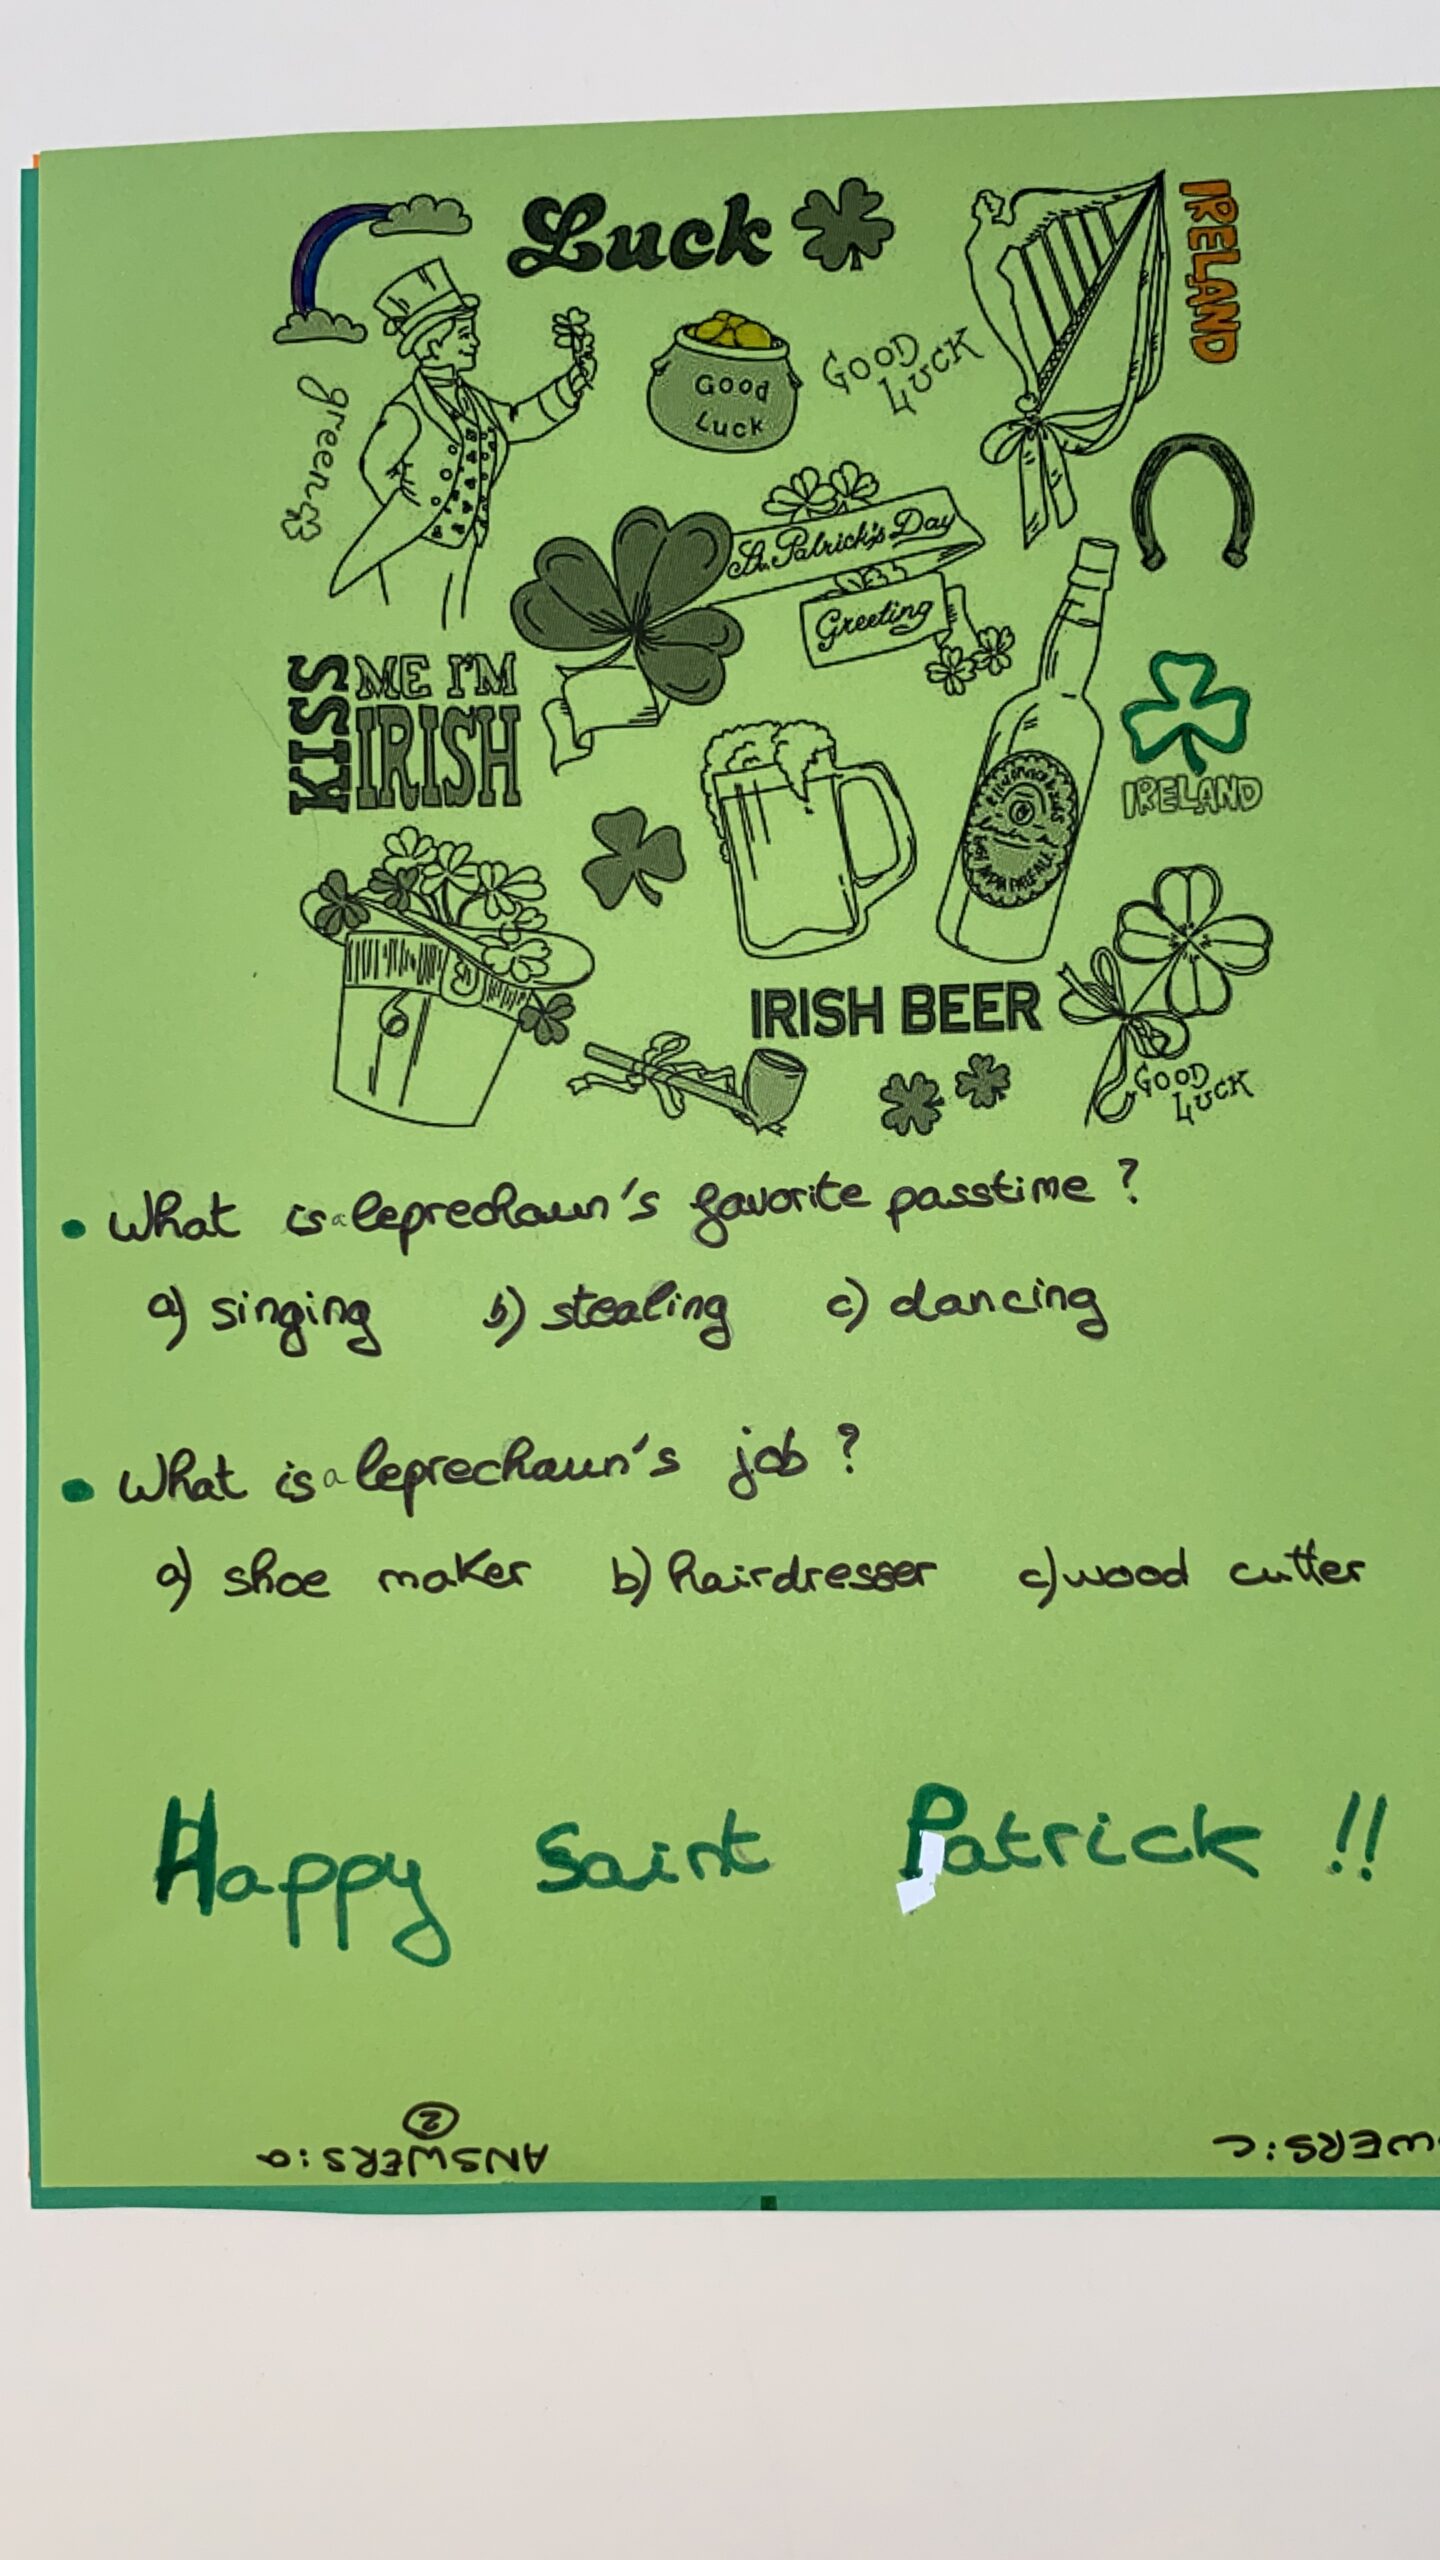 Luck
IRELAND
green
Good
Luck
GOOD
LUCK
St. Patrick's Day
Greeting
KISS
ME I'M
IRISH
IRELAND
PALE ALE
IRISH BEER
GOOD
LUCK
• What is a leprechaun's favorite passtime ?
a) singing b) stealing c) dancing
• What is a leprechaun's job ?
a) shoe maker b) hairdresser c) wood cutter
Happy Saint Patrick !!
ANSWERS : a
2
WERS : C